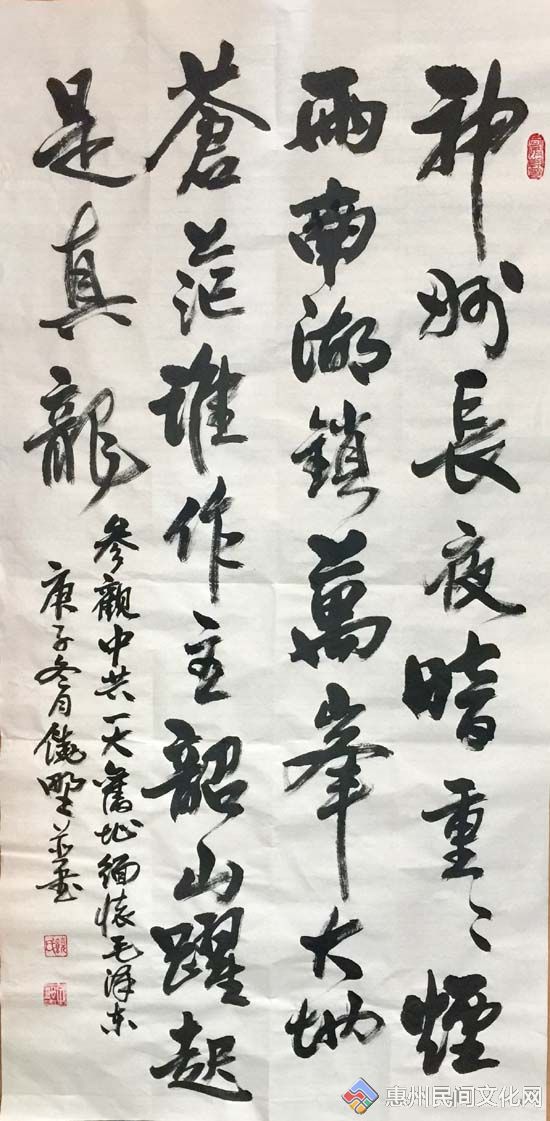 神州長夜暗重重煙
雨南湖鎖萬峯大地
蒼茫誰作主韶山躍起
是真龍
參觀中共一大舊址緬懷毛澤东
庚子冬月饒野並書
惠州民间文化网